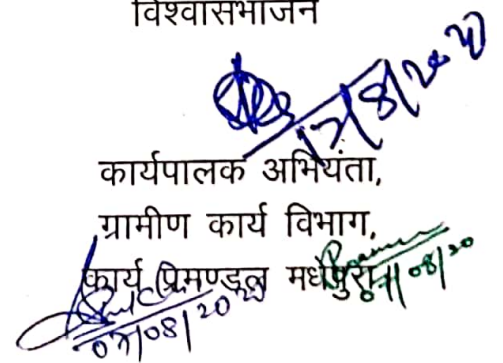 विश्वासभाजन
17/8/2020
कार्यपालक अभियंता,
ग्रामीण कार्य विभाग,
कार्य प्रमण्डल मधेपुरा
07/08/2020
07/08/20